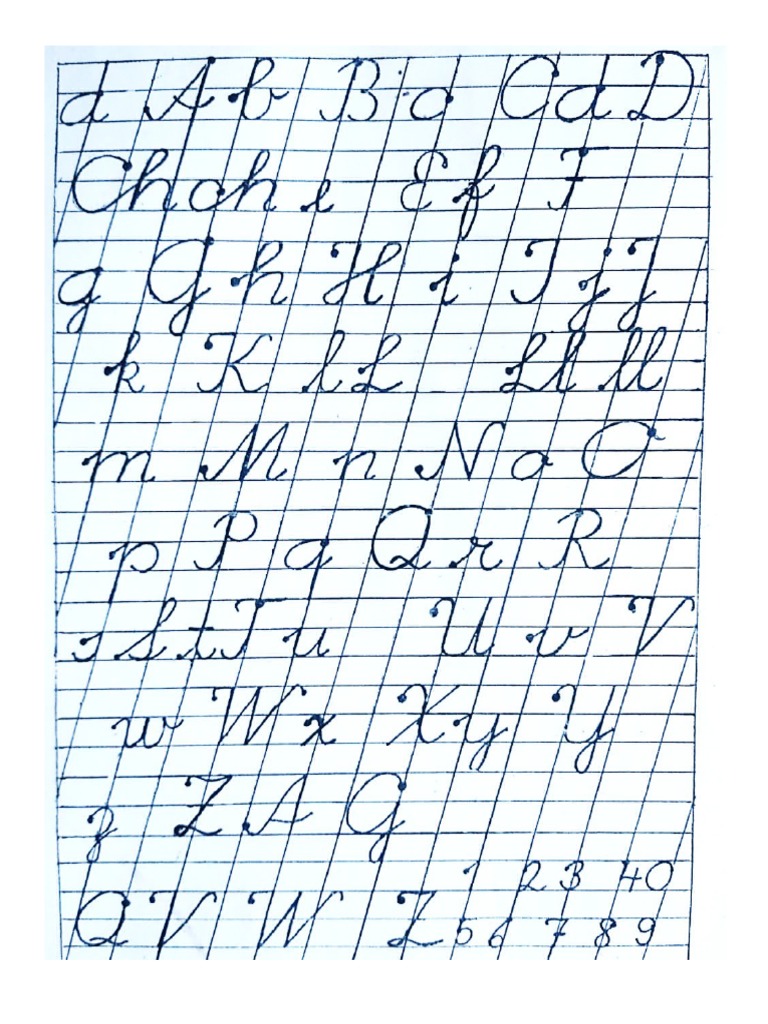 a A b B c C d D
Ch ch e E f F
g G h H i I j J
k K l L Ll ll
m M n N o O
p P q Q r R
s S t T u U v V
w W x X y Y
z Z A G
1 2 3 4 0
Q V W Z 5 6 7 8 9